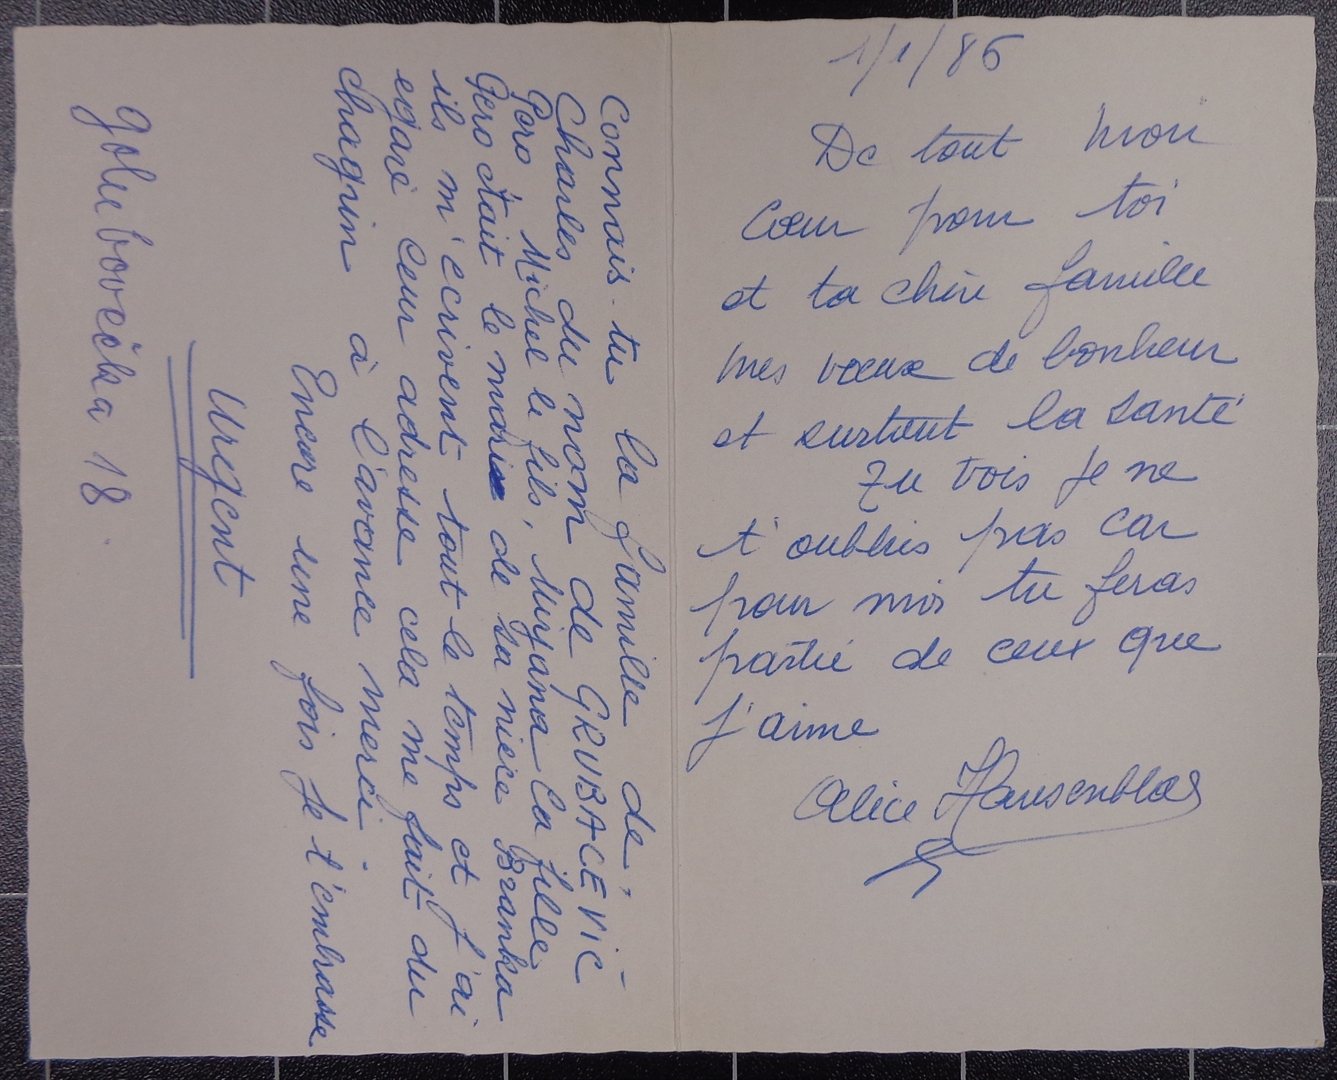 1/1/86
De tout mon
Cœur pour toi
et ta chère famille
mes vœux de bonheur
et surtout la santé
Tu vois je ne
t'oublies pas car
pour moi tu feras
partie de ceux que
j'aime
Alice Hausenblas
Connais-tu la famille de,
Charles du nom de GRUBACEVIC
Pero, Michel le fils, Mirjana la fille
Pero était le mari de sa nièce Branka
ils m'écrivent tout le temps et j'ai
egaré leur adresse cela me fait du
chagrin à l'avance merci.
Encore une fois je t'embrasse
Urgent
Golubovečka 18.